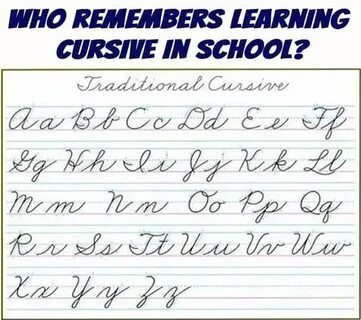 WHO REMEMBERS LEARNING
CURSIVE IN SCHOOL?
Traditional Cursive
Aa Bb Cc Dd Ee Ff
Gg Hh Ii Jj Kk Ll
Mm Nn Oo Pp Qq
Rr Ss Tt Uu Vv Ww
Xx Yy Zz